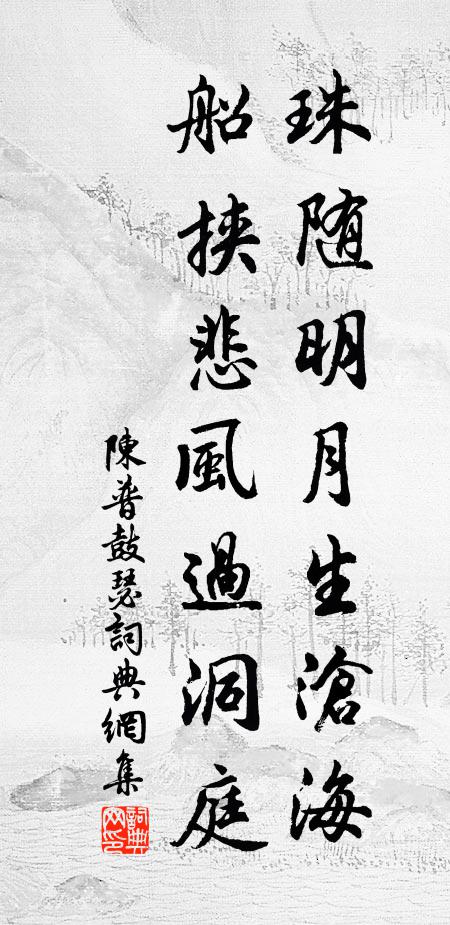 珠随明月生滄海
船挾悲風過洞庭
陳普鼓瑟詞典網集
詞典网印